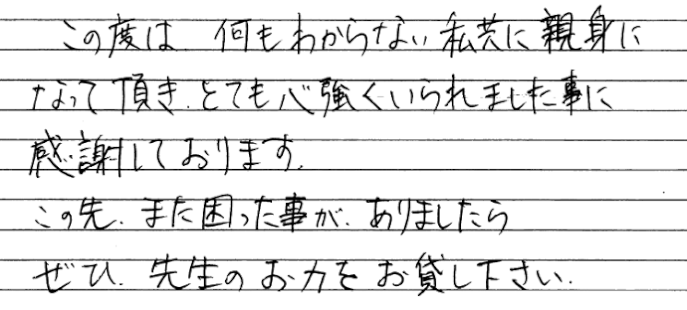 この度は 何もわからない私共に親身に
なって頂き、とても心強くいられました事に
感謝しております。
この先、また困った事が、ありましたら
ぜひ、先生のお力をお貸し下さい。